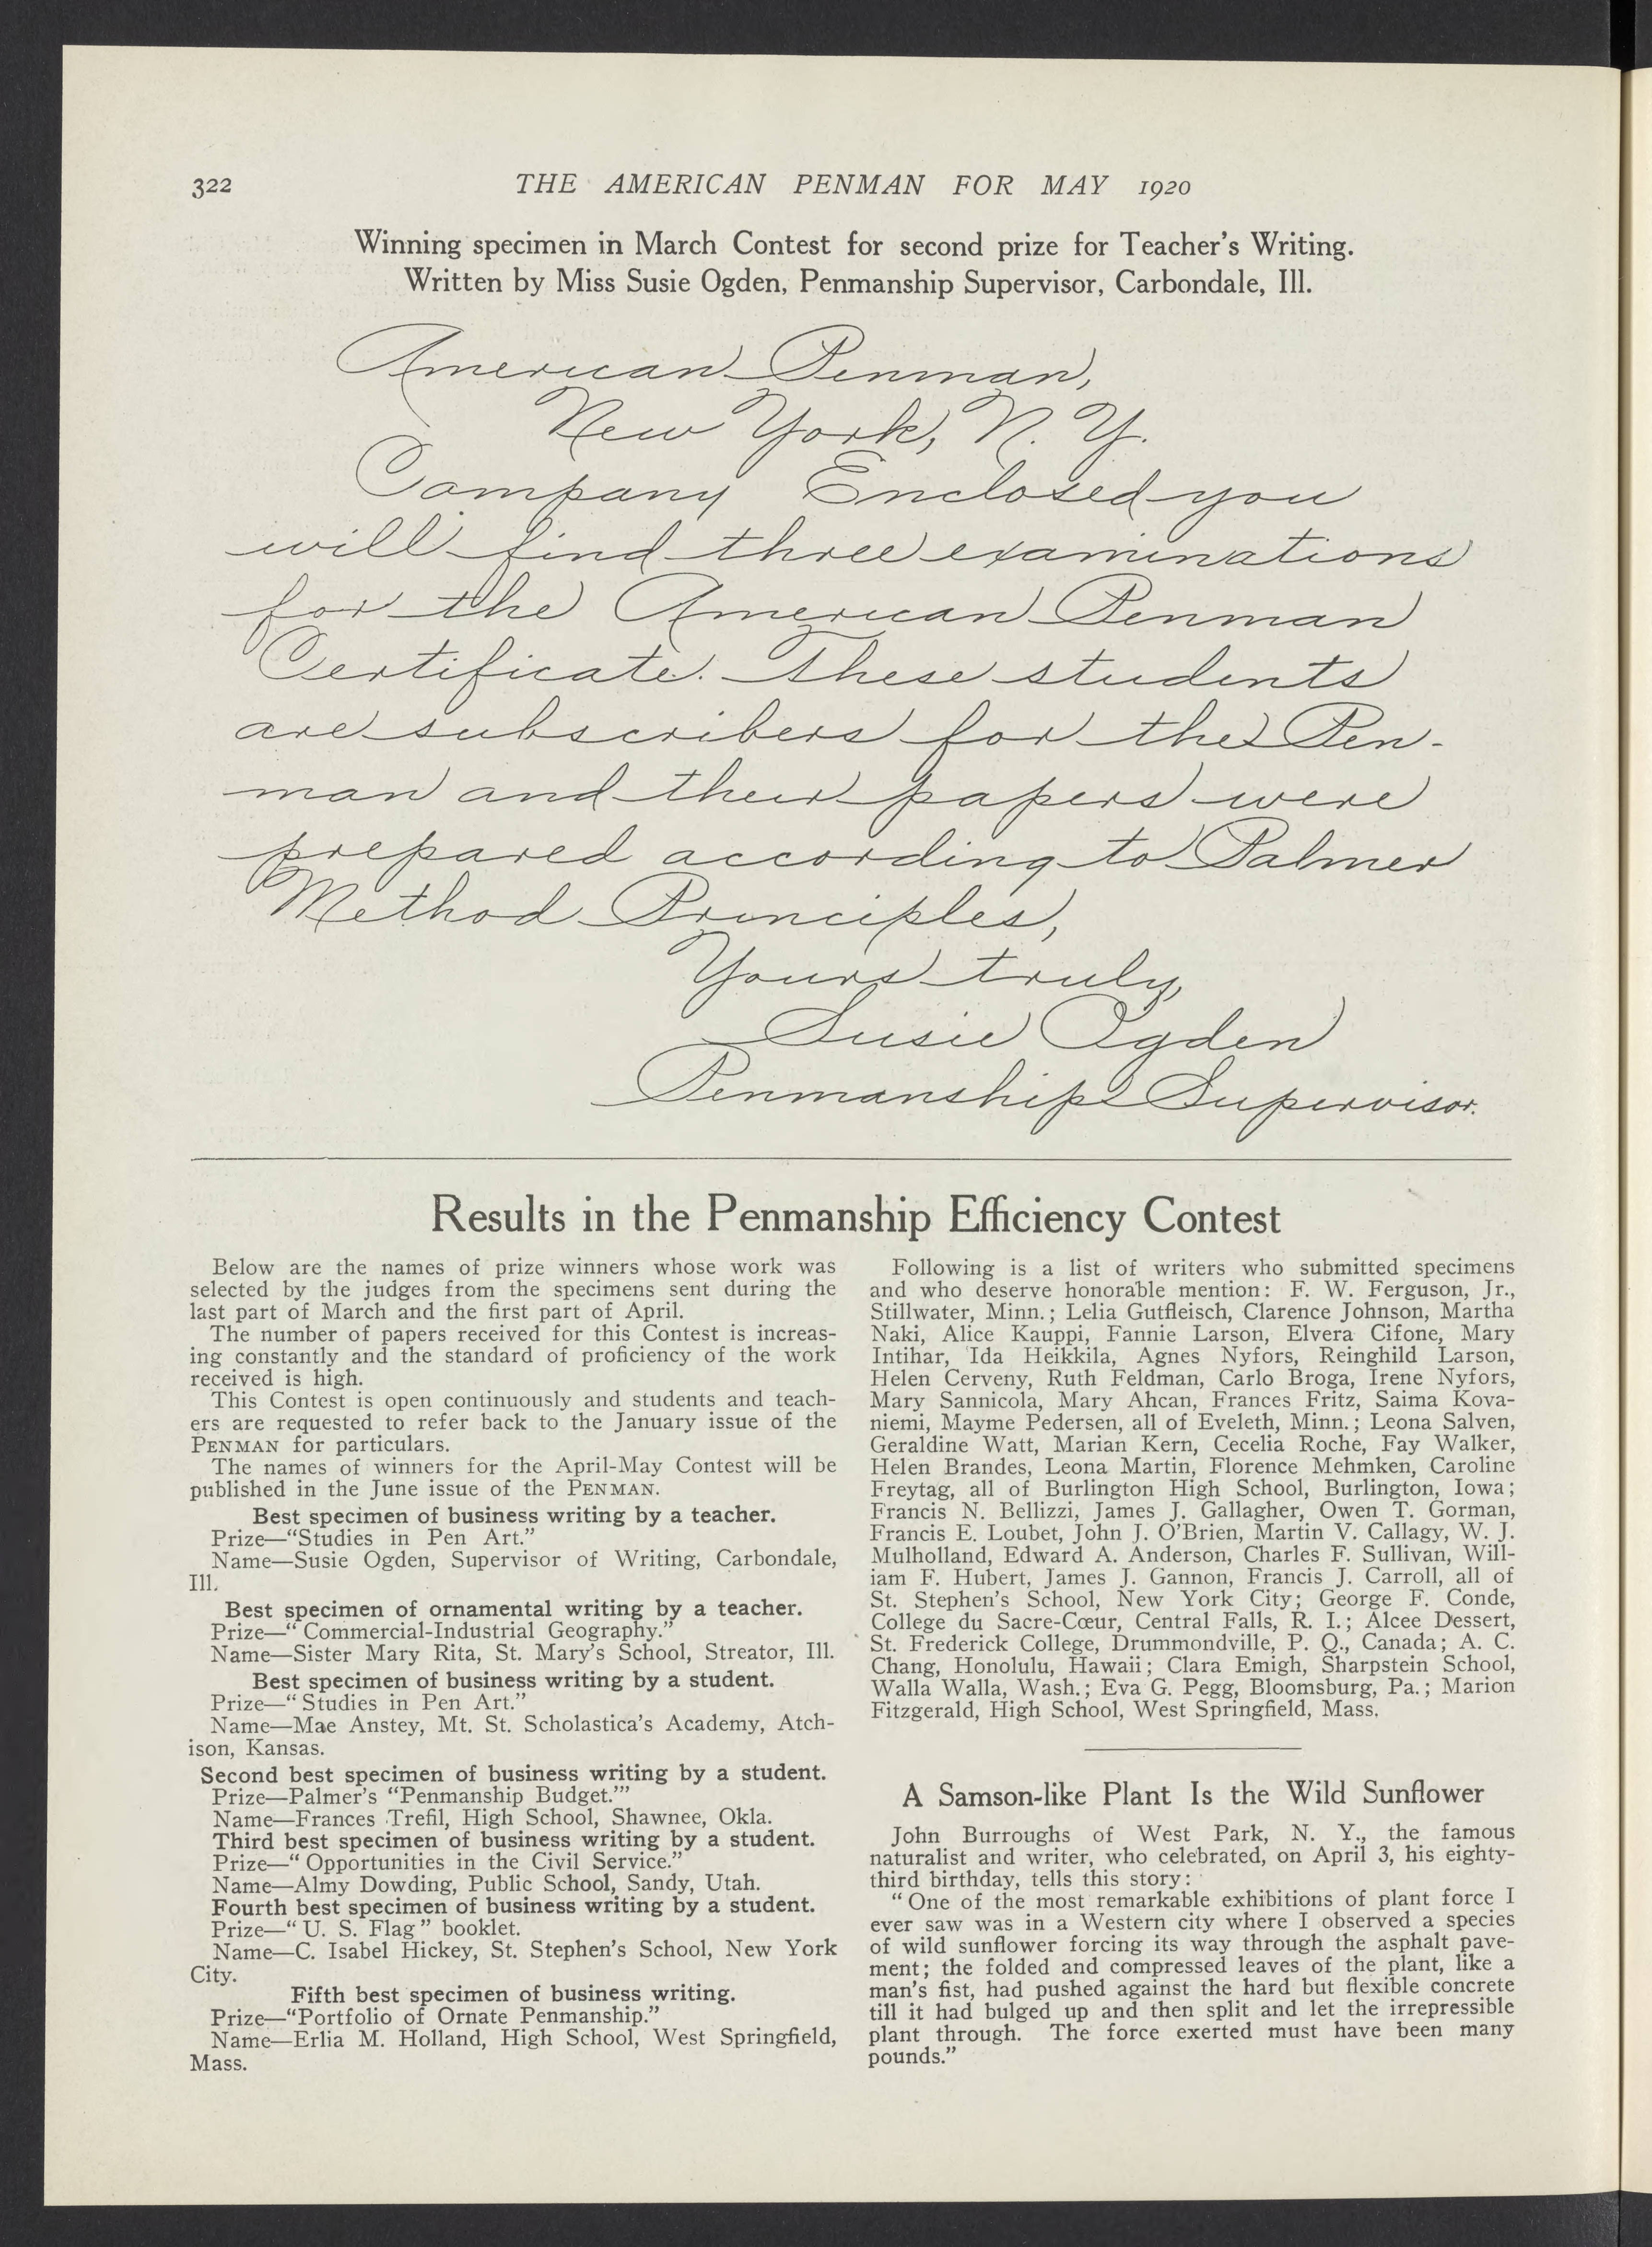 322
THE AMERICAN PENMAN FOR MAY 1920
Winning specimen in March Contest for second prize for Teacher's Writing.
Written by Miss Susie Ogden, Penmanship Supervisor, Carbondale, Ill.
American Penman,
New York, N. Y.
Company Enclosed you
will find three examinations
for the American Penman
Certificate. These students
are subscribers for the Pen-
man and their papers were
prepared according to Palmer
Method Principles,
Yours truly,
Susie Ogden
Penmanship Supervisor.
Results in the Penmanship Efficiency Contest
Below are the names of prize winners whose work was
selected by the judges from the specimens sent during the
last part of March and the first part of April.
The number of papers received for this Contest is increas-
ing constantly and the standard of proficiency of the work
received is high.
This Contest is open continuously and students and teach-
ers are requested to refer back to the January issue of the
PENMAN for particulars.
The names of winners for the April-May Contest will be
published in the June issue of the PENMAN.
Best specimen of business writing by a teacher.
Prize—“Studies in Pen Art.”
Name—Susie Ogden, Supervisor of Writing, Carbondale,
Ill.
Best specimen of ornamental writing by a teacher.
Prize—“ Commercial-Industrial Geography.”
Name—Sister Mary Rita, St. Mary's School, Streator, Ill.
Best specimen of business writing by a student.
Prize—“ Studies in Pen Art.”
Name—Mae Anstey, Mt. St. Scholastica's Academy, Atch-
ison, Kansas.
Second best specimen of business writing by a student.
Prize—Palmer's “Penmanship Budget.’”
Name—Frances Trefil, High School, Shawnee, Okla.
Third best specimen of business writing by a student.
Prize—“ Opportunities in the Civil Service.”
Name—Almy Dowding, Public School, Sandy, Utah.
Fourth best specimen of business writing by a student.
Prize—“ U. S. Flag ” booklet.
Name—C. Isabel Hickey, St. Stephen's School, New York
City.
Fifth best specimen of business writing.
Prize—“Portfolio of Ornate Penmanship.”
Name—Erlia M. Holland, High School, West Springfield,
Mass.
Following is a list of writers who submitted specimens
and who deserve honorable mention: F. W. Ferguson, Jr.,
Stillwater, Minn.; Lelia Gutfleisch, Clarence Johnson, Martha
Naki, Alice Kauppi, Fannie Larson, Elvera Cifone, Mary
Intihar, Ida Heikkila, Agnes Nyfors, Reinghild Larson,
Helen Cerveny, Ruth Feldman, Carlo Broga, Irene Nyfors,
Mary Sannicola, Mary Ahcan, Frances Fritz, Saima Kova-
niemi, Mayme Pedersen, all of Eveleth, Minn.; Leona Salven,
Geraldine Watt, Marian Kern, Cecelia Roche, Fay Walker,
Helen Brandes, Leona Martin, Florence Mehmken, Caroline
Freytag, all of Burlington High School, Burlington, Iowa;
Francis N. Bellizzi, James J. Gallagher, Owen T. Gorman,
Francis E. Loubet, John J. O'Brien, Martin V. Callagy, W. J.
Mulholland, Edward A. Anderson, Charles F. Sullivan, Will-
iam F. Hubert, James J. Gannon, Francis J. Carroll, all of
St. Stephen's School, New York City; George F. Conde,
College du Sacre-Cœur, Central Falls, R. I.; Alcee Dessert,
St. Frederick College, Drummondville, P. Q., Canada; A. C.
Chang, Honolulu, Hawaii; Clara Emigh, Sharpstein School,
Walla Walla, Wash.; Eva G. Pegg, Bloomsburg, Pa.; Marion
Fitzgerald, High School, West Springfield, Mass.
A Samson-like Plant Is the Wild Sunflower
John Burroughs of West Park, N. Y., the famous
naturalist and writer, who celebrated, on April 3, his eighty-
third birthday, tells this story:
“ One of the most remarkable exhibitions of plant force I
ever saw was in a Western city where I observed a species
of wild sunflower forcing its way through the asphalt pave-
ment; the folded and compressed leaves of the plant, like a
man's fist, had pushed against the hard but flexible concrete
till it had bulged up and then split and let the irrepressible
plant through. The force exerted must have been many
pounds.”